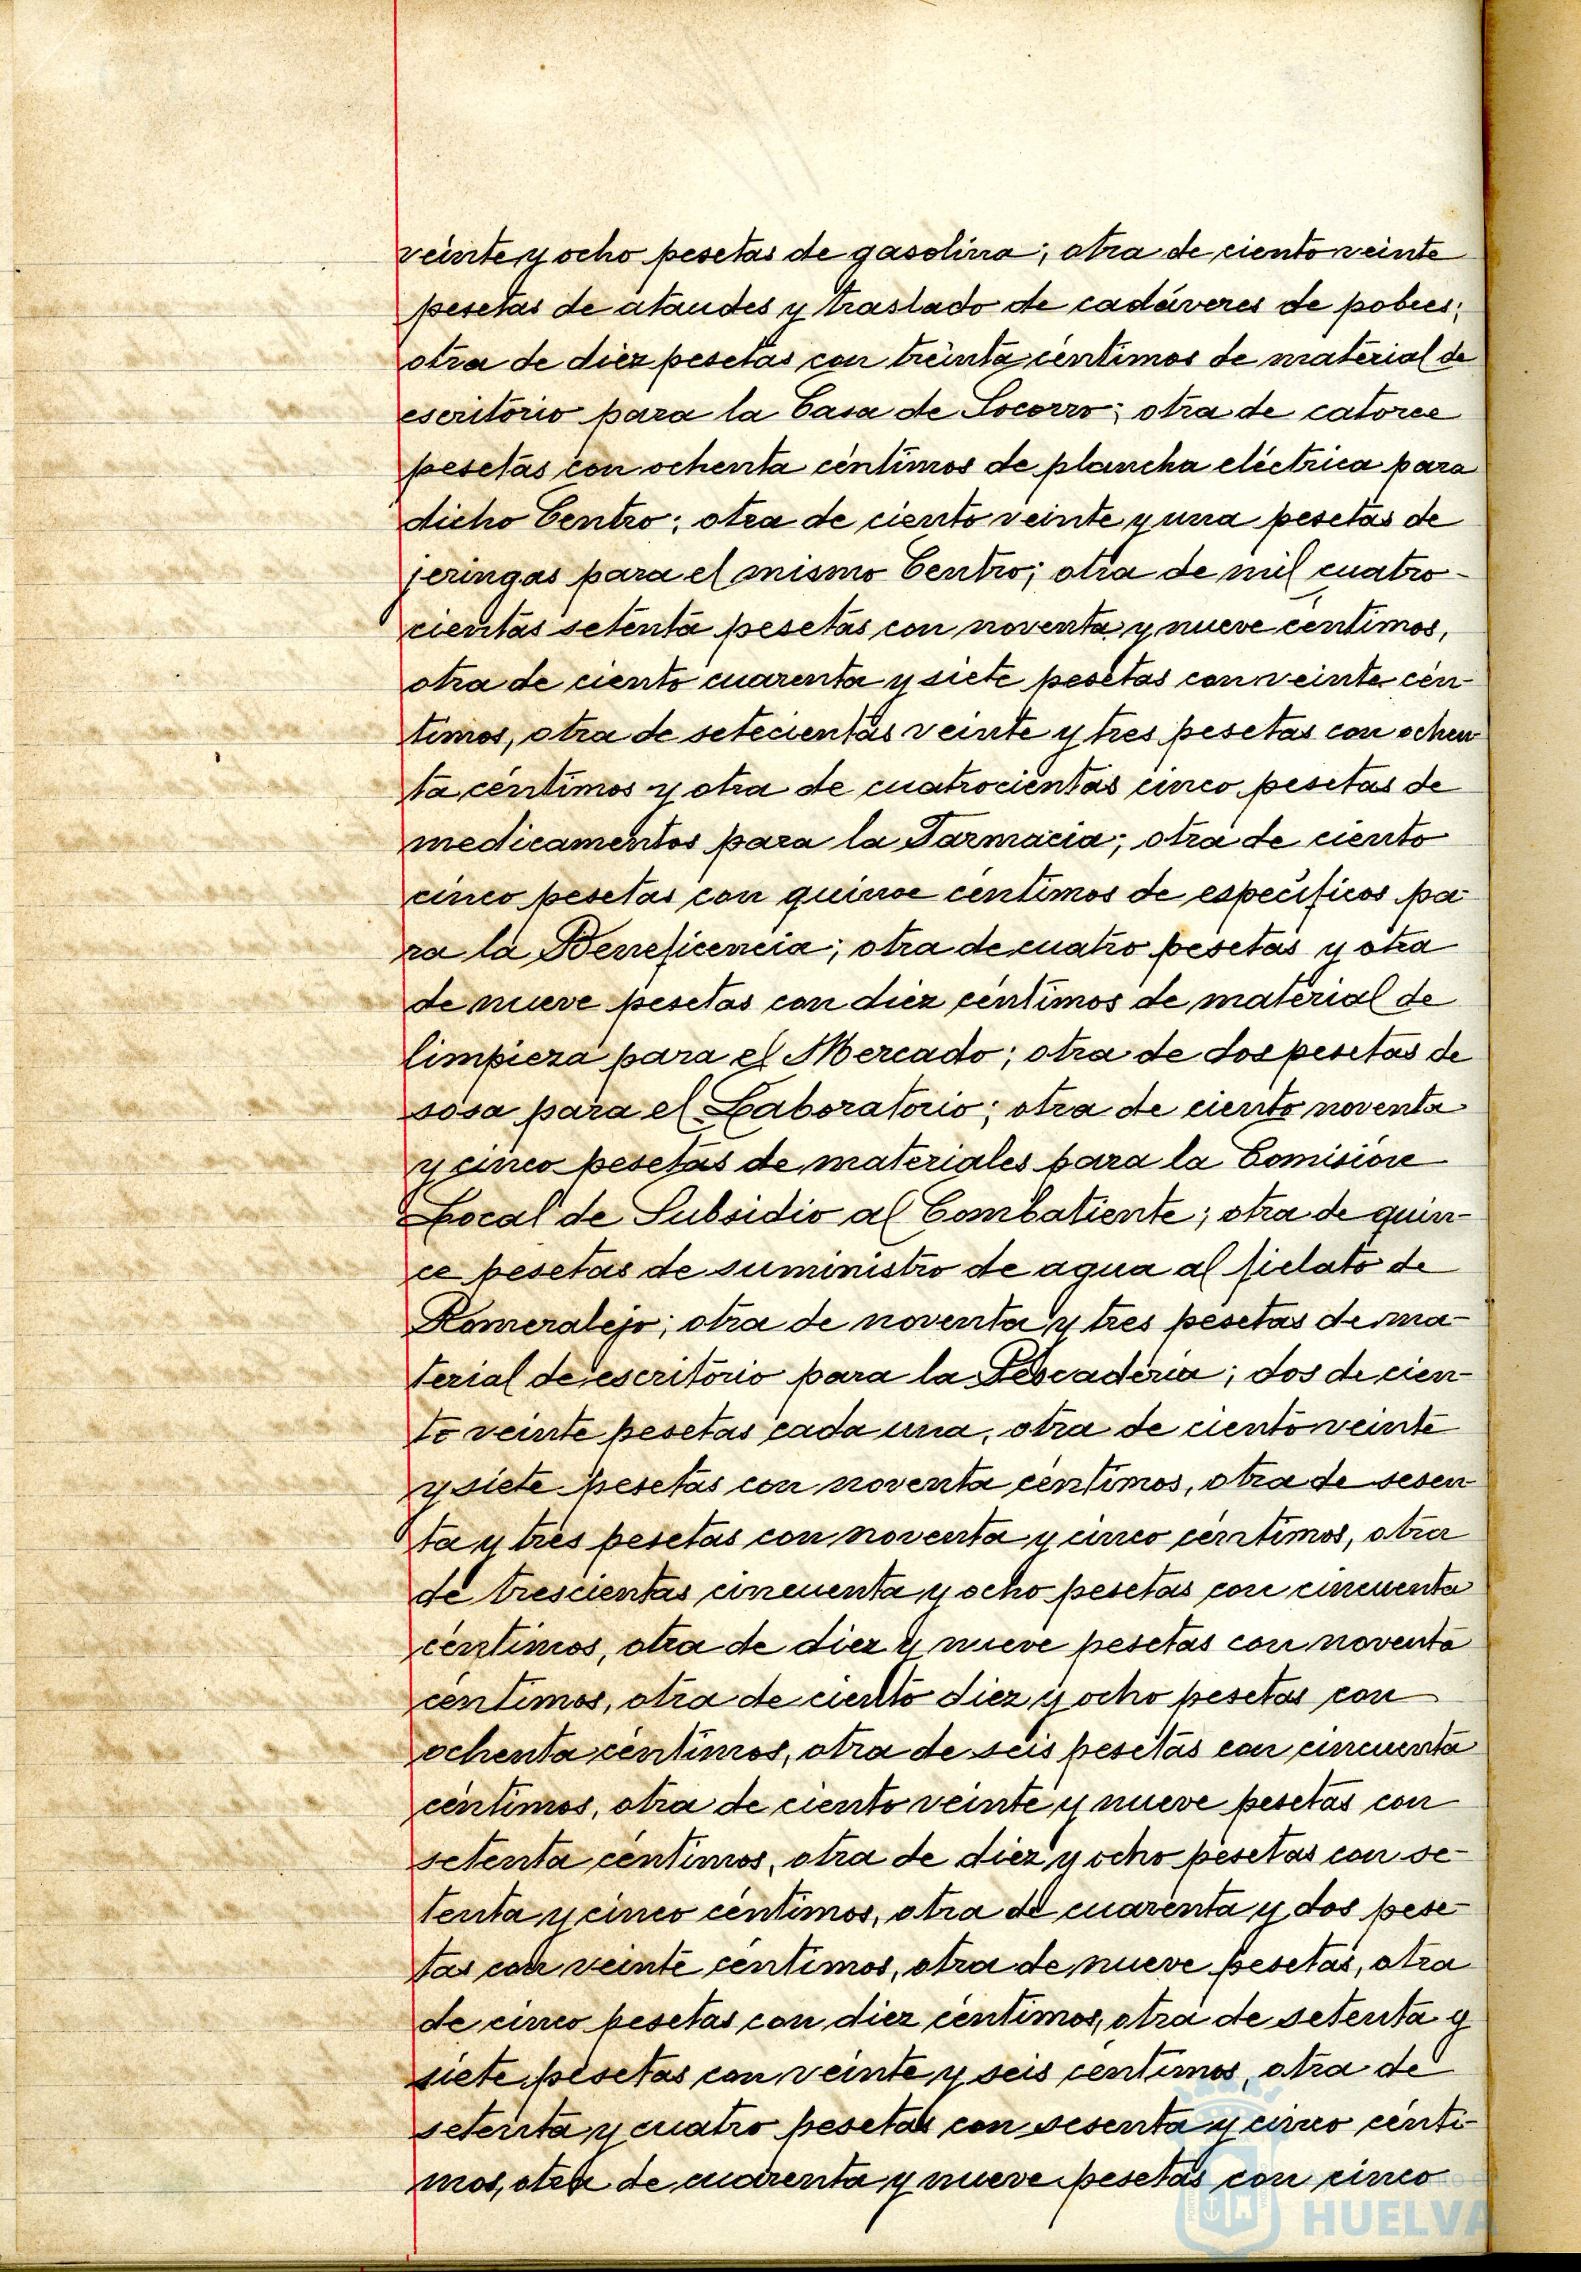 veinte y ocho pesetas de gasolina; otra de ciento veinte
pesetas de ataudes y traslado de cadáveres de pobres;
otra de diez pesetas con treinta céntimos de material de
escritorio para la Casa de Socorro; otra de catorce
pesetas con ochenta céntimos de plancha eléctrica para
dicho Centro; otra de ciento veinte y una pesetas de
jeringas para el mismo Centro; otra de mil cuatro-
cientas setenta pesetas con noventa y nueve céntimos,
otra de ciento cuarenta y siete pesetas con veinte cén-
timos, otra de setecientas veinte y tres pesetas con ochen
ta céntimos y otra de cuatrocientas cinco pesetas de
medicamentos para la Farmacia; otra de ciento
cinco pesetas con quince céntimos de específicos pa-
ra la Beneficencia; otra de cuatro pesetas y otra
de nueve pesetas con diez céntimos de material de
limpieza para el Mercado; otra de dos pesetas de
sosa para el Laboratorio; otra de ciento noventa
y cinco pesetas de materiales para la Comisión
Local de Subsidio al Combatiente; otra de quin-
ce pesetas de suministro de agua al fielato de
Romeralejo; otra de noventa y tres pesetas de ma-
terial de escritorio para la Pescadería; dos de cien-
to veinte pesetas cada una, otra de ciento veinte
y siete pesetas con noventa céntimos, otra de sesen-
ta y tres pesetas con noventa y cinco céntimos, otra
de trescientas cincuenta y ocho pesetas con cincuenta
céntimos, otra de diez y nueve pesetas con noventa
céntimos, otra de ciento diez y ocho pesetas con
ochenta céntimos, otra de seis pesetas con cincuenta
céntimos, otra de ciento veinte y nueve pesetas con
setenta céntimos, otra de diez y ocho pesetas con se-
tenta y cinco céntimos, otra de cuarenta y dos pese-
tas con veinte céntimos, otra de nueve pesetas, otra
de cinco pesetas con diez céntimos, otra de setenta y
siete pesetas con veinte y seis céntimos, otra de
setenta y cuatro pesetas con sesenta y cinco cénti-
mos, otra de cuarenta y nueve pesetas con cinco
HUELVA